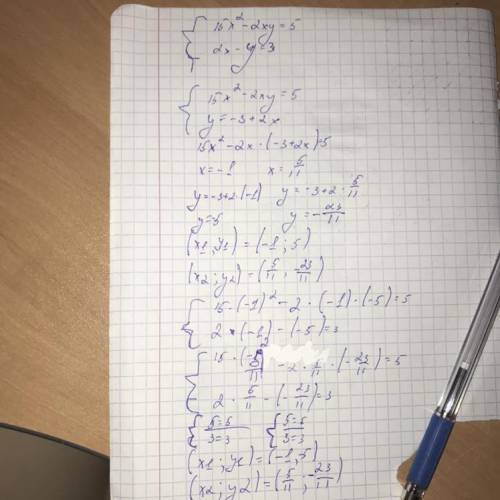 15x² - 2xy = 5
2x - y = 3
15x² - 2xy = 5
y = -3 + 2x
15x² - 2x · (-3 + 2x) = 5
x = -1 x = 5/11
y = -3 + 2 · (-1) y = -3 + 2 · 5/11
y = 5 y = -23/11
(x1; y1) = (-1; 5)
(x2; y2) = (5/11; -23/11)
15 · (-1)² - 2 · (-1) · (-5) = 5
2 × (-1) - (-5) = 3
15 · (5/11)² - 2 · 5/11 · (-23/11) = 5
2 · 5/11 - (-23/11) = 3
5 = 5 5 = 5
3 = 3 3 = 3
(x1; y1) = (-1; 5)
(x2; y2) = (5/11; -23/11)